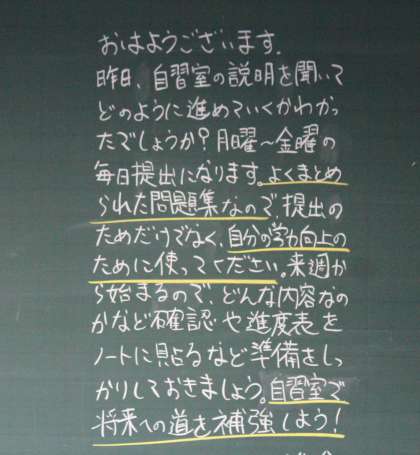 おはようございます.
昨日、自習室の説明を聞いて
どのように進めていくかわかっ
たでしょうか？月曜～金曜の
毎日提出になります。よくまとめ
られた問題集なので、提出の
ためだけでなく、自分の学力向上の
ために使ってください。来週か
ら始まるので、どんな内容なの
かなど確認や進度表を
ノートに貼るなど準備をしっ
かりしておきましょう。自習室で
将来への道を補強しよう！